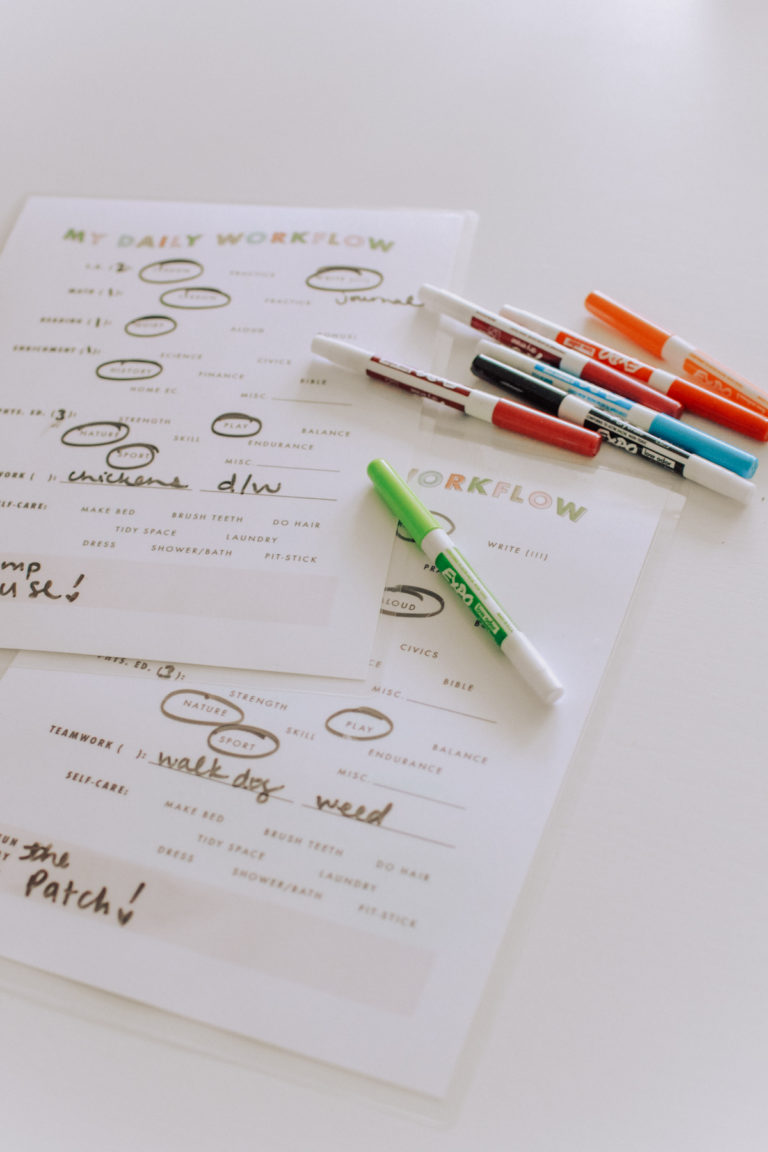 MY DAILY WORKFLOW
L.A. (2): LESSON PRACTICE WRITE (III)
MATH (1): LESSON PRACTICE journal
READING (1): QUIET ALOUD
ENRICHMENT (1): SCIENCE CIVICS
HISTORY FINANCE BIBLE
HOME EC. MISC.
PHYS. ED. (3): STRENGTH PLAY BALANCE
NATURE SKILL ENDURANCE
SPORT MISC.
WORK ( ): chickens d/w
SELF-CARE: MAKE BED BRUSH TEETH DO HAIR
TIDY SPACE LAUNDRY
DRESS SHOWER/BATH PIT-STICK
mp
use!
WORKFLOW
WRITE (III)
ALOUD
CIVICS
BIBLE
MISC.
PHYS. ED. (3):
STRENGTH
NATURE SKILL PLAY BALANCE
SPORT ENDURANCE
MISC.
TEAMWORK ( ): walk dog weed
SELF-CARE:
MAKE BED BRUSH TEETH DO HAIR
TIDY SPACE LAUNDRY
DRESS SHOWER/BATH PIT-STICK
the
Patch!
EXPO
EXPO low odor
EXPO low odor
EXPO